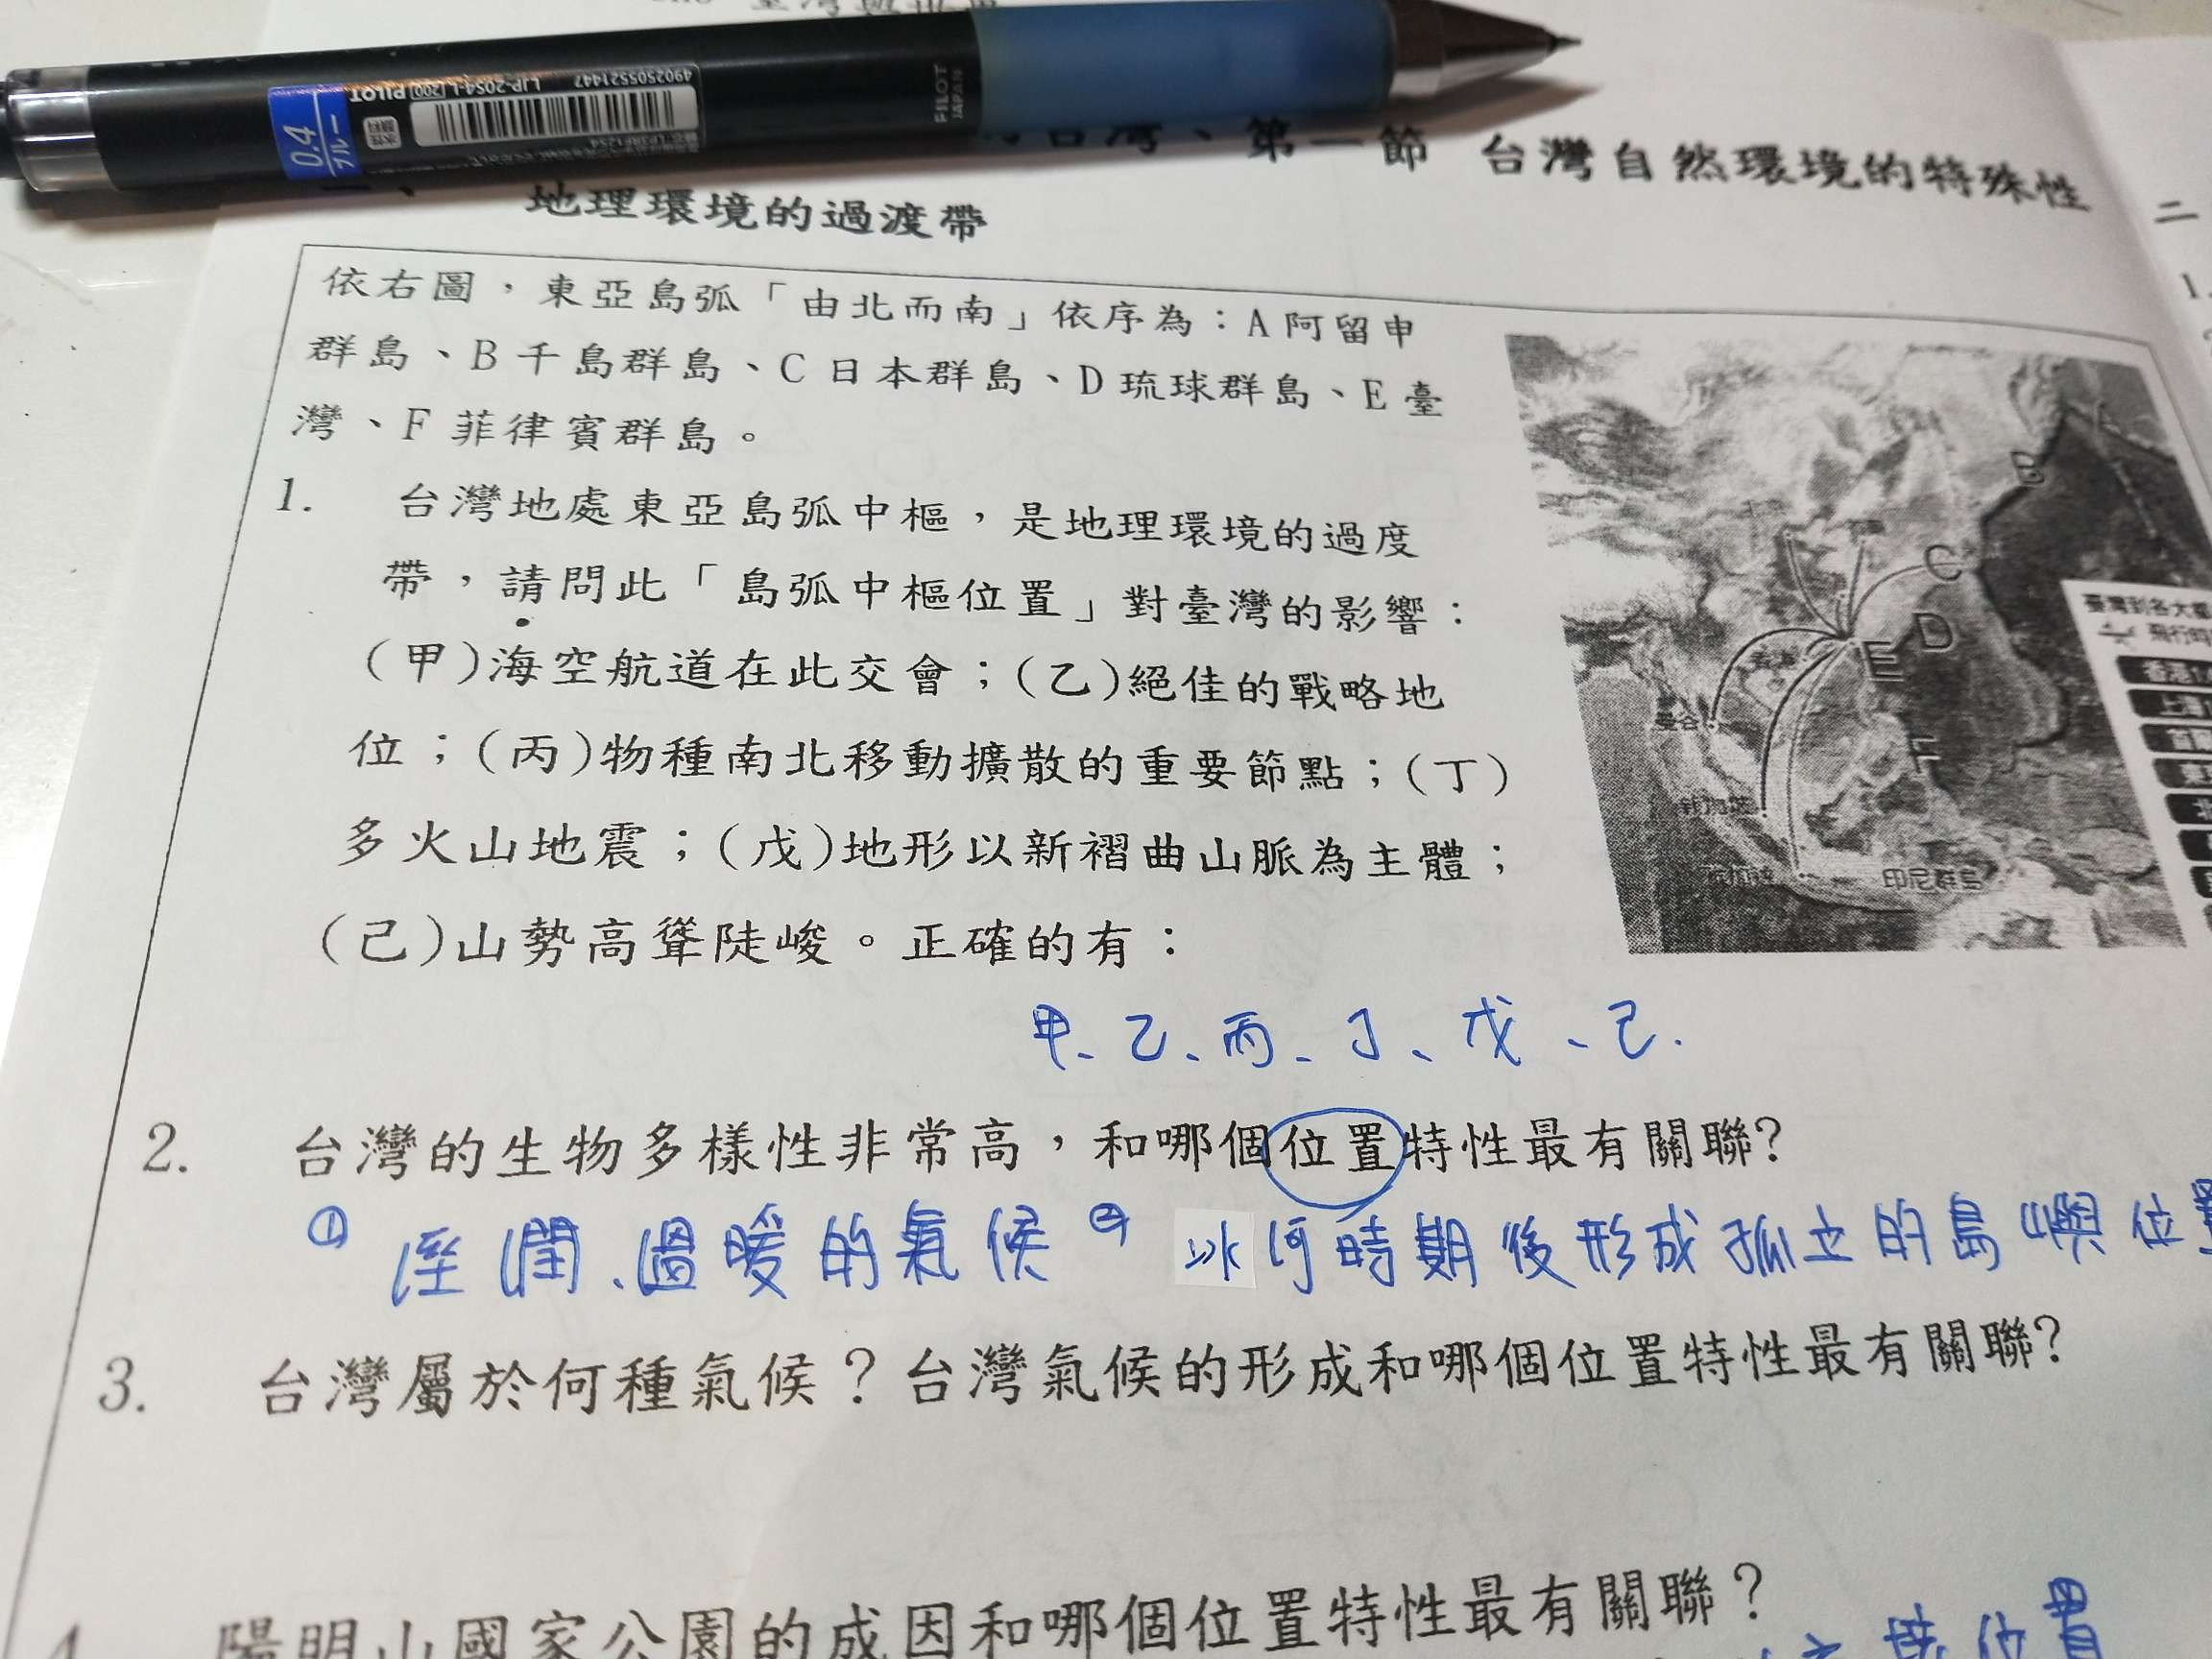 4902505521447
LJP-20S4-L [200] PILOT
0.4
ブルー
PILOT
JAPAN
台灣、第一節 台灣自然環境的特殊性
地理環境的過渡帶
二
1.
依右圖,東亞島弧「由北而南」依序為:A阿留申
群島、B千島群島、C日本群島、D琉球群島、E臺
灣、F菲律賓群島。
1. 台灣地處東亞島弧中樞,是地理環境的過度
帶,請問此「島弧中樞位置」對臺灣的影響:
(甲)海空航道在此交會;(乙)絕佳的戰略地
位;(丙)物種南北移動擴散的重要節點;(丁)
多火山地震;(戊)地形以新褶曲山脈為主體;
(己)山勢高聳陡峻。正確的有:
B
C
D
E
F
曼谷
新加坡
印尼群島
臺灣到各大都
飛行時
香港1
上海
甲、乙、丙、丁、戊、己.
2. 台灣的生物多樣性非常高,和哪個位置特性最有關聯?
① 溼潤、溫暖的氣候 ② 冰河時期後形成孤立的島嶼位置
3. 台灣屬於何種氣候?台灣氣候的形成和哪個位置特性最有關聯?
4. 陽明山國家公園的成因和哪個位置特性最有關聯?
位置